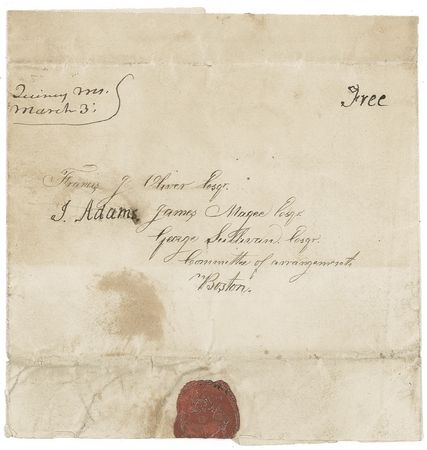 Quincy Ms.
March 3.
Free
Francis J. Oliver Esqr.
J. Adams James Magee Esqr.
George Sullivan. Esqr.
Committee of arrangements
Boston.